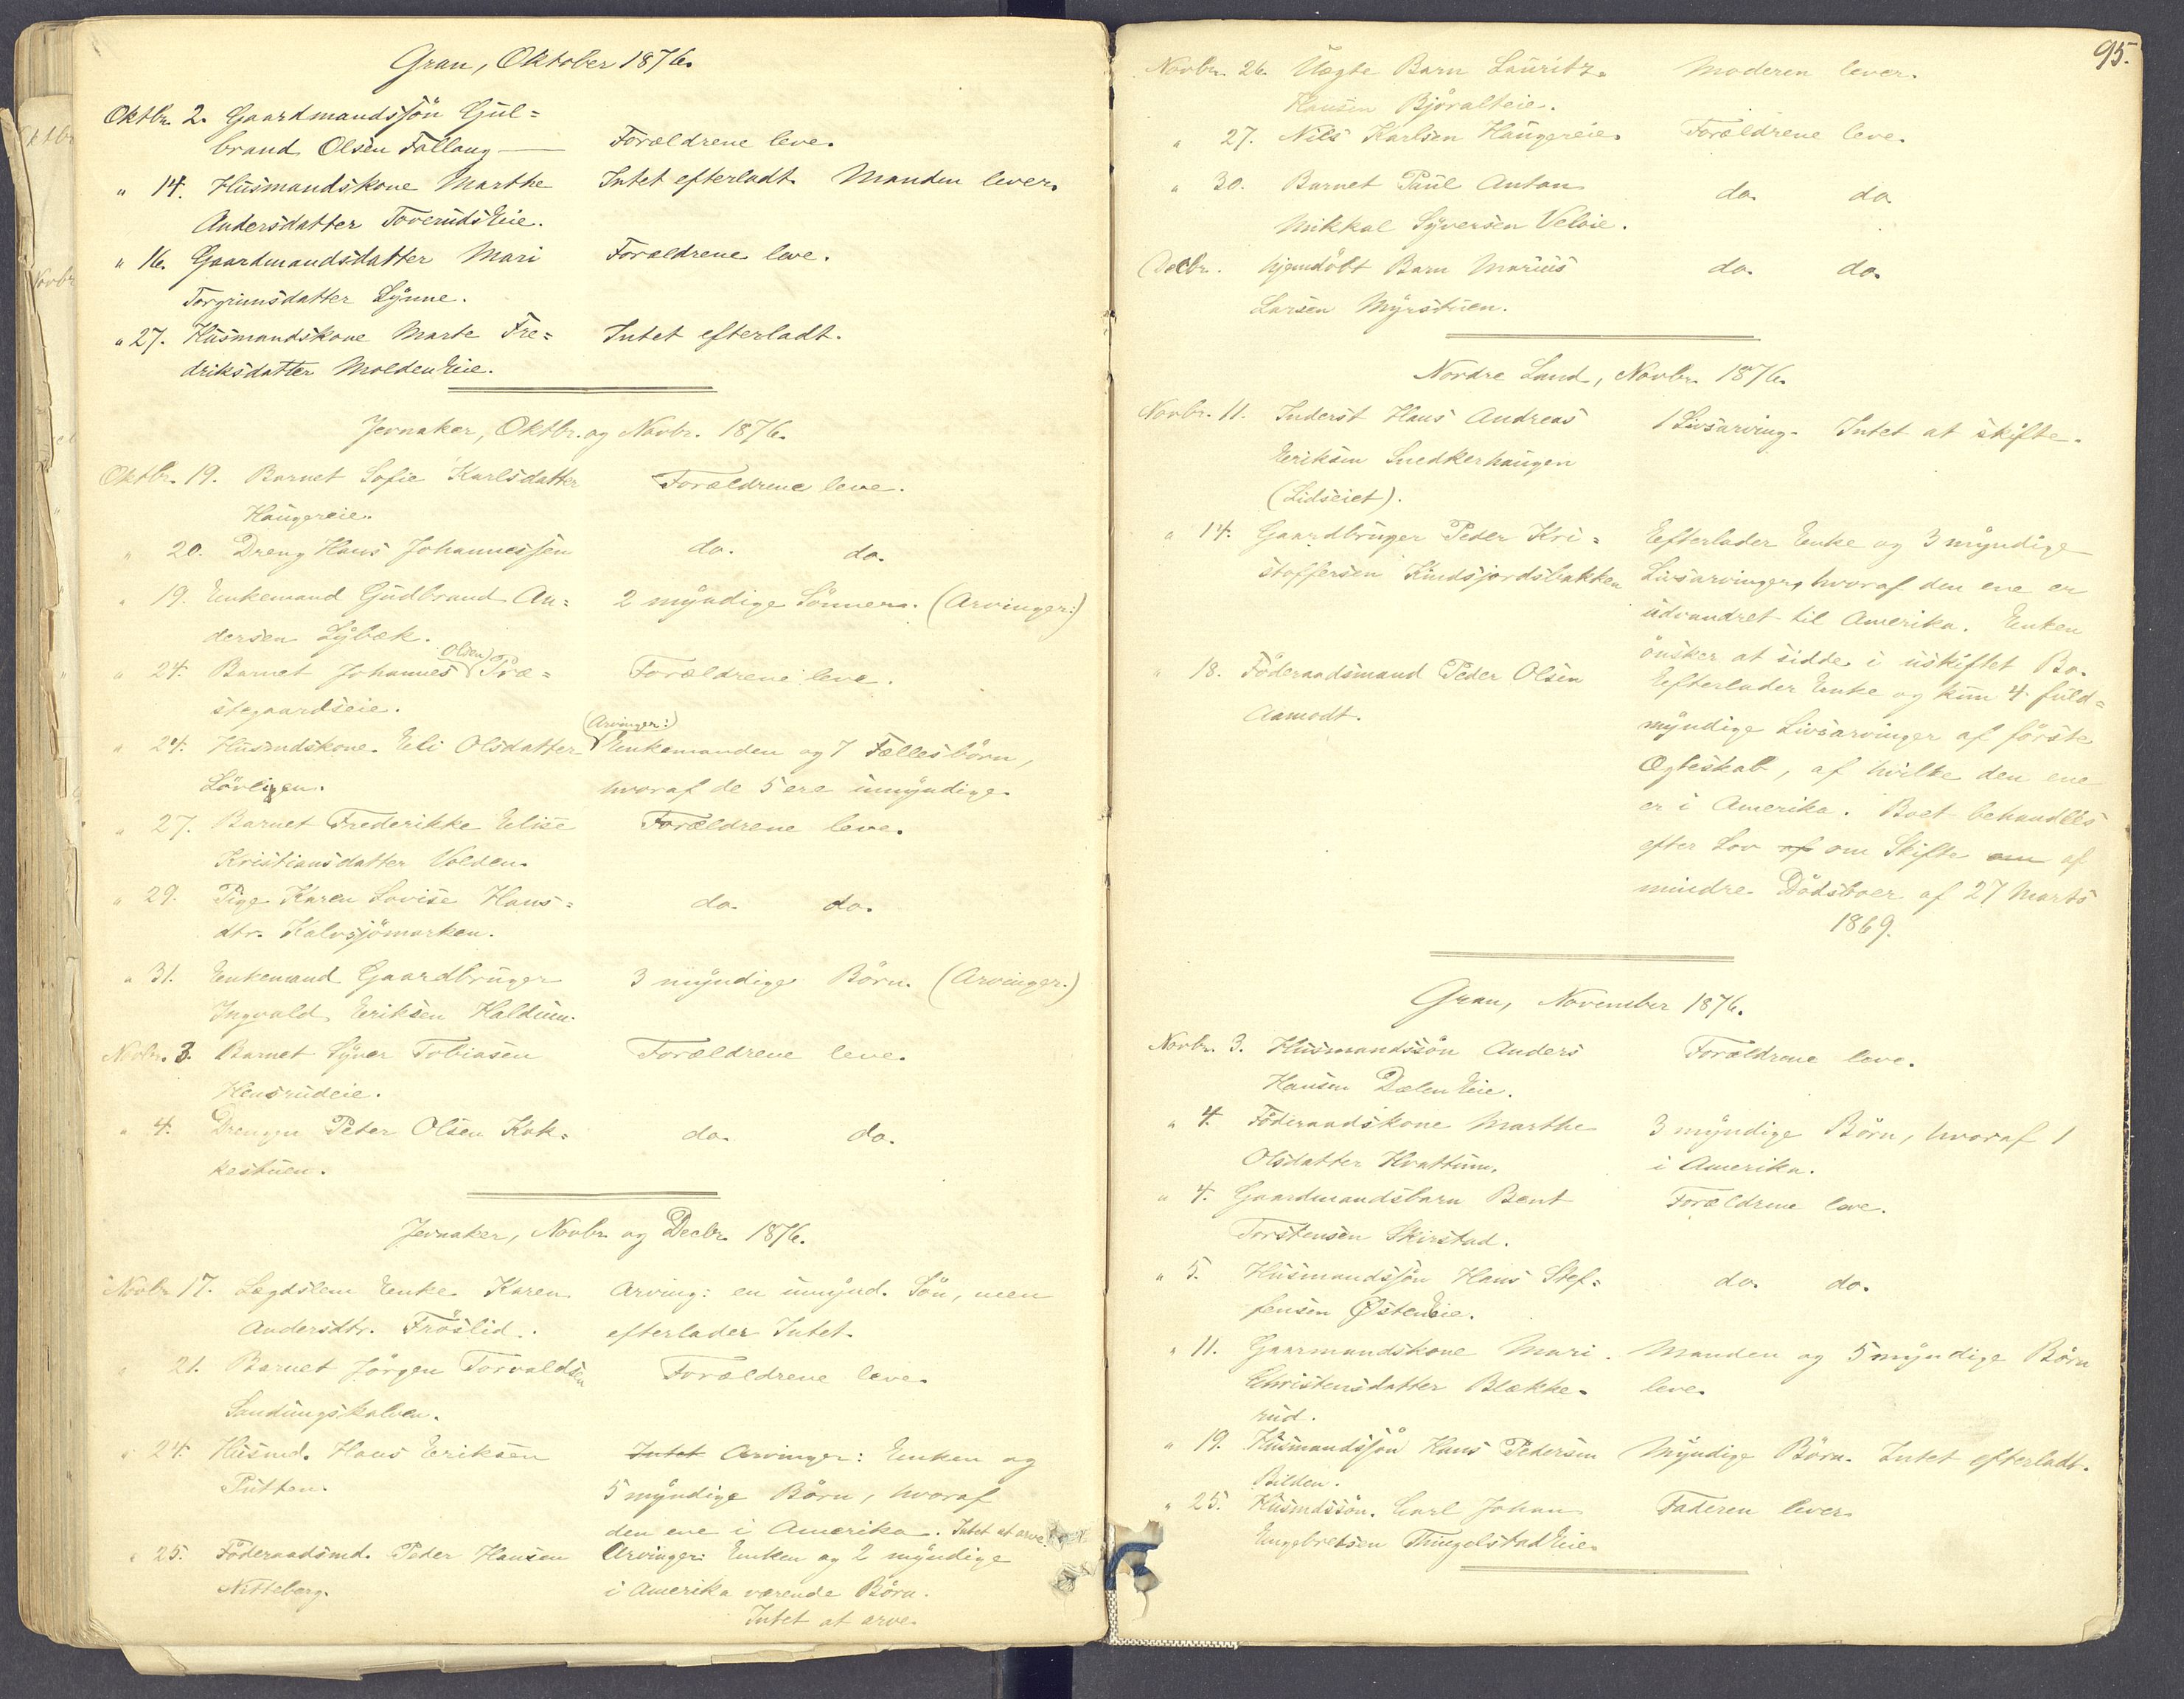 Gran, Oktober 1876.
Oktbr. 2. Gaardmandssön Gul=
brand Olsen Fallang — Forældrene leve.
" 14. Husmandskone Marthe Intet efterladt. Manden lever.
Andersdatter Toverudseie.
" 16. Gaardmandsdatter Mari Forældrene leve.
Torgrimsdatter Lynne.
" 27. Husmandskone Marte Fre= Intet efterladt.
driksdatter MoldenEie.
Jevnaker, Oktbr. og Novbr. 1876.
Oktbr. 19. Barnet Sofie Karlsdatter Forældrene leve.
Haugereie.
" 20. Dreng Hans Johannessen do. do.
" 19. Enkemand Gudbrand An= 2 myndige Sönner. (Arvinger:)
dersen Lybæk.
" 24. Barnet Johannes (Olsen) Præ= Forældrene leve.
stegaardseie.
" 24. Husmdskone. Eli Olsdatter (Arvinger:) Enkemanden og 7 Fællesbörn,
Lövligen. hvoraf de 5 ere umyndige.
" 27. Barnet Frederikke Elise Forældrene leve.
Kristiansdatter Volden.
" 29. Pige Karen Lovise Hans= do. do.
dtr. Kalvsjömarken.
" 31. Enkemand Gaardbruger 3 myndige Börn. (Arvinger.)
Ingvald Eriksen Haldum.
Novbr. 3. Barnet Syver Tobiasen Forældrene leve.
Hensrudeie.
" 4. Drengen Peter Olsen Kok= do. do.
kestuen.
Jevnaker, Novbr. og Decbr. 1876.
Novbr 17. Lægdslem Enke Karen Arving: en umynd. Sön, men
Andersdtr. Fröslid. efterlader Intet.
" 21. Barnet Jörgen Torvaldsen Forældrene leve.
Sandungskalven.
" 24. Husmd. Hans Eriksen Intet Arvinger: Enken og
Putten. 5 myndige Börn, hvoraf
den ene i Amerika. Intet at arve.
" 25. Föderaadsmd. Peder Hansen Arvinger: Enken og 2 myndige
Nitteberg. i Amerika værende Börn.
Intet at arve.
95.
Novbr. 26. Uægte Barn Lauritz Moderen lever.
Hansen Björalteie.
" 27. Nils Karlsen Haugereie. Forældrene leve.
" 30. Barnet Paul Anton do. do.
Mikkal Syversen Veloie.
Decbr. hjemdöbt Barn Marius do. do.
Larsen Myrstuen.
Nordre Land, Novbr. 1876.
Novbr. 11. Inderst Hans Andreas 1 Livsarving. Intet at skifte.
Eriksen Snedkerhaugen
(Lidseiet).
" 14. Gaardbruger Peder Kri= Efterlader Enke og 3 myndige
stoffersen Kindsjordsbakken Livsarvinger, hvoraf den ene er
udvandret til Amerika. Enken
önsker at sidde i uskiftet Bo.
" 18. Föderaadsmand Peder Olsen Efterlader Enke og kun 4 fuld=
Aamodt. myndige Livsarvinger af förste
Ægteskab, af hvilke den ene
er i Amerika. Boet behandles
efter Lov af om Skifte om af
mindre Dödsboer af 27 Marts
1869.
Gran, November 1876.
Novbr. 3. Husmandssön Anders Forældrene leve.
Hansen DælenEie.
" 4. Föderaadskone Marthe 3 myndige Börn, hvoraf 1
Olsdatter Hvattum. i Amerika.
" 4. Gaardmandsbarn Bent Forældrene leve.
Torstensen Skirstad.
" 5. Husmandssön Hans Stef= do. do.
fensen ØstenEie.
" 11. Gaarmandskone Mari Manden og 5 myndige Börn
Christensdatter Blække= leve.
rud.
" 19. Husmandssön Hans Pedersen Myndige Börn. Intet efterladt.
Bilden.
" 25. Husmdssön. Carl Johan Faderen lever.
Engebretsen ThingelstadEie.